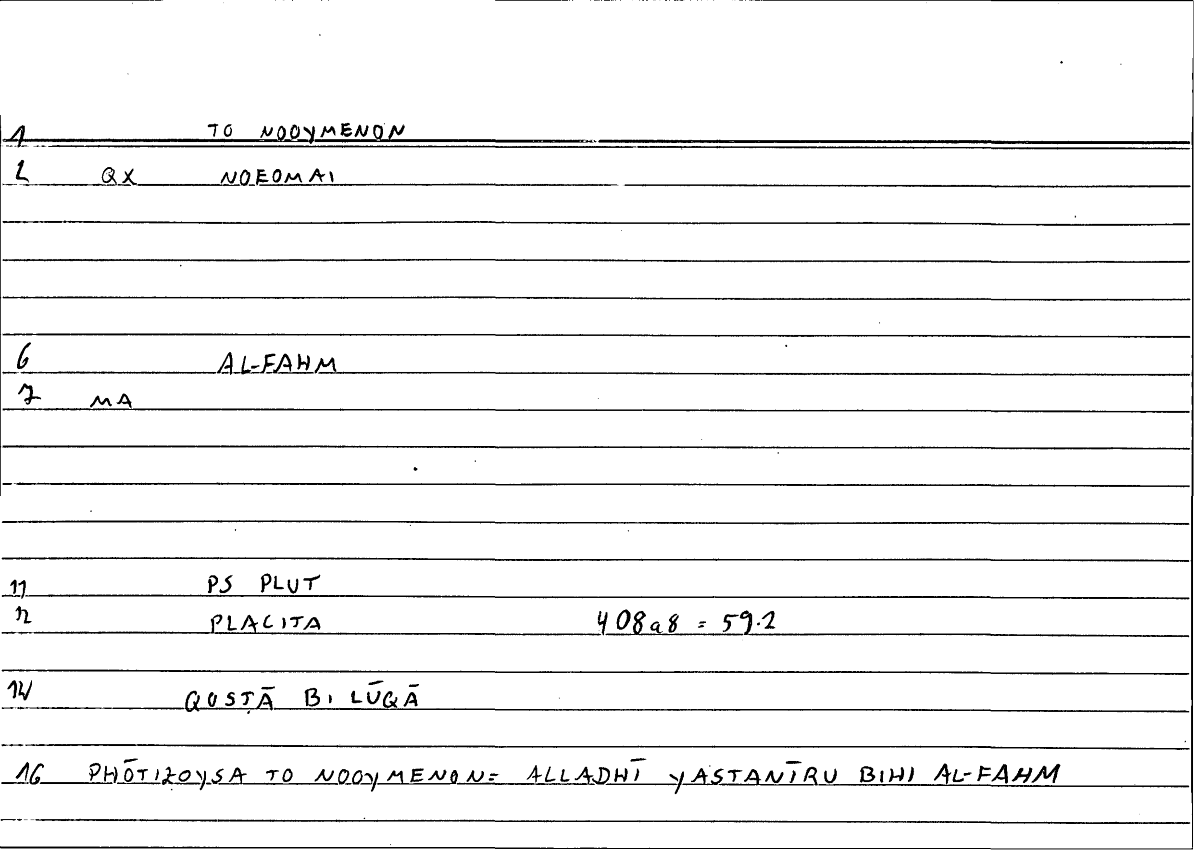 1 TO NOOYMENON
2 QX NOEOMAI
6 AL-FAHM
7 MA
11 PS PLUT
12 PLACITA 408a8 = 59.2
14 QUSṬĀ B. LŪQĀ
16 PHŌTIZOYSA TO NOOYMENON = ALLADHĪ YASTANĪRU BIHI AL-FAHM